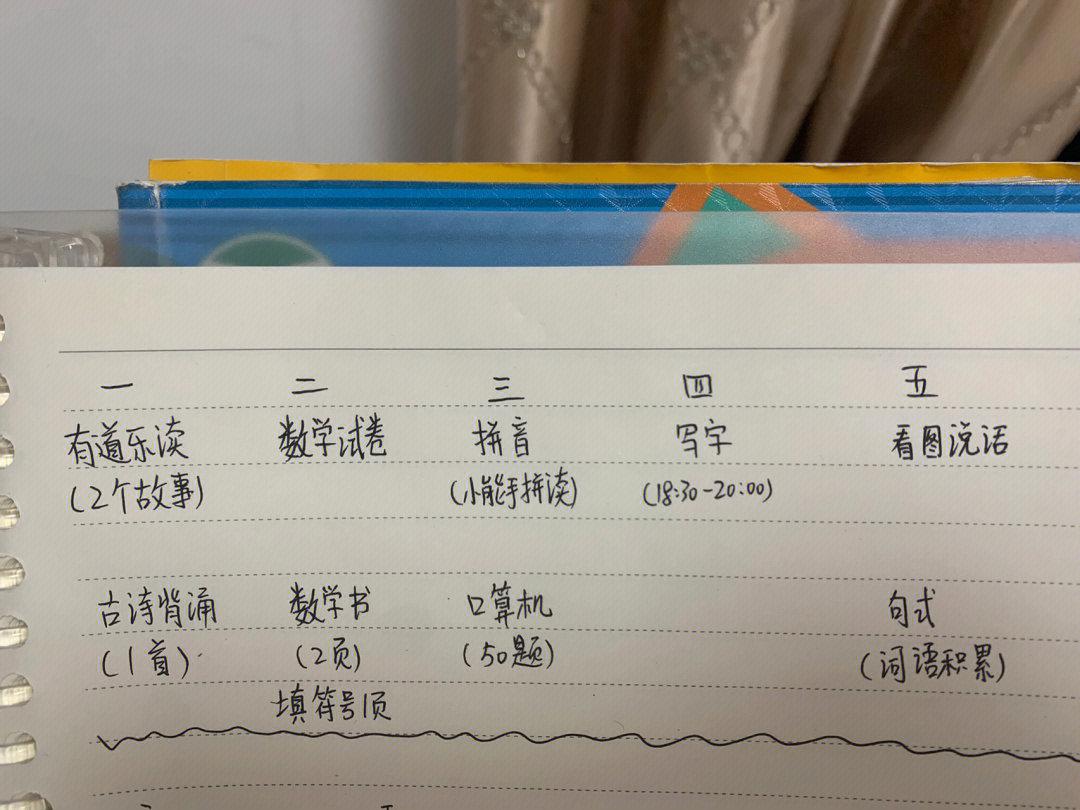 一 二 三 四 五
有道乐读 数学试卷 拼音 写字 看图说话
(2个故事) (小能手拼读) (18:30-20:00)
古诗背涌 数学书 口算机 句式
(1首) (2页) (50题) (词语积累)
填符号1页